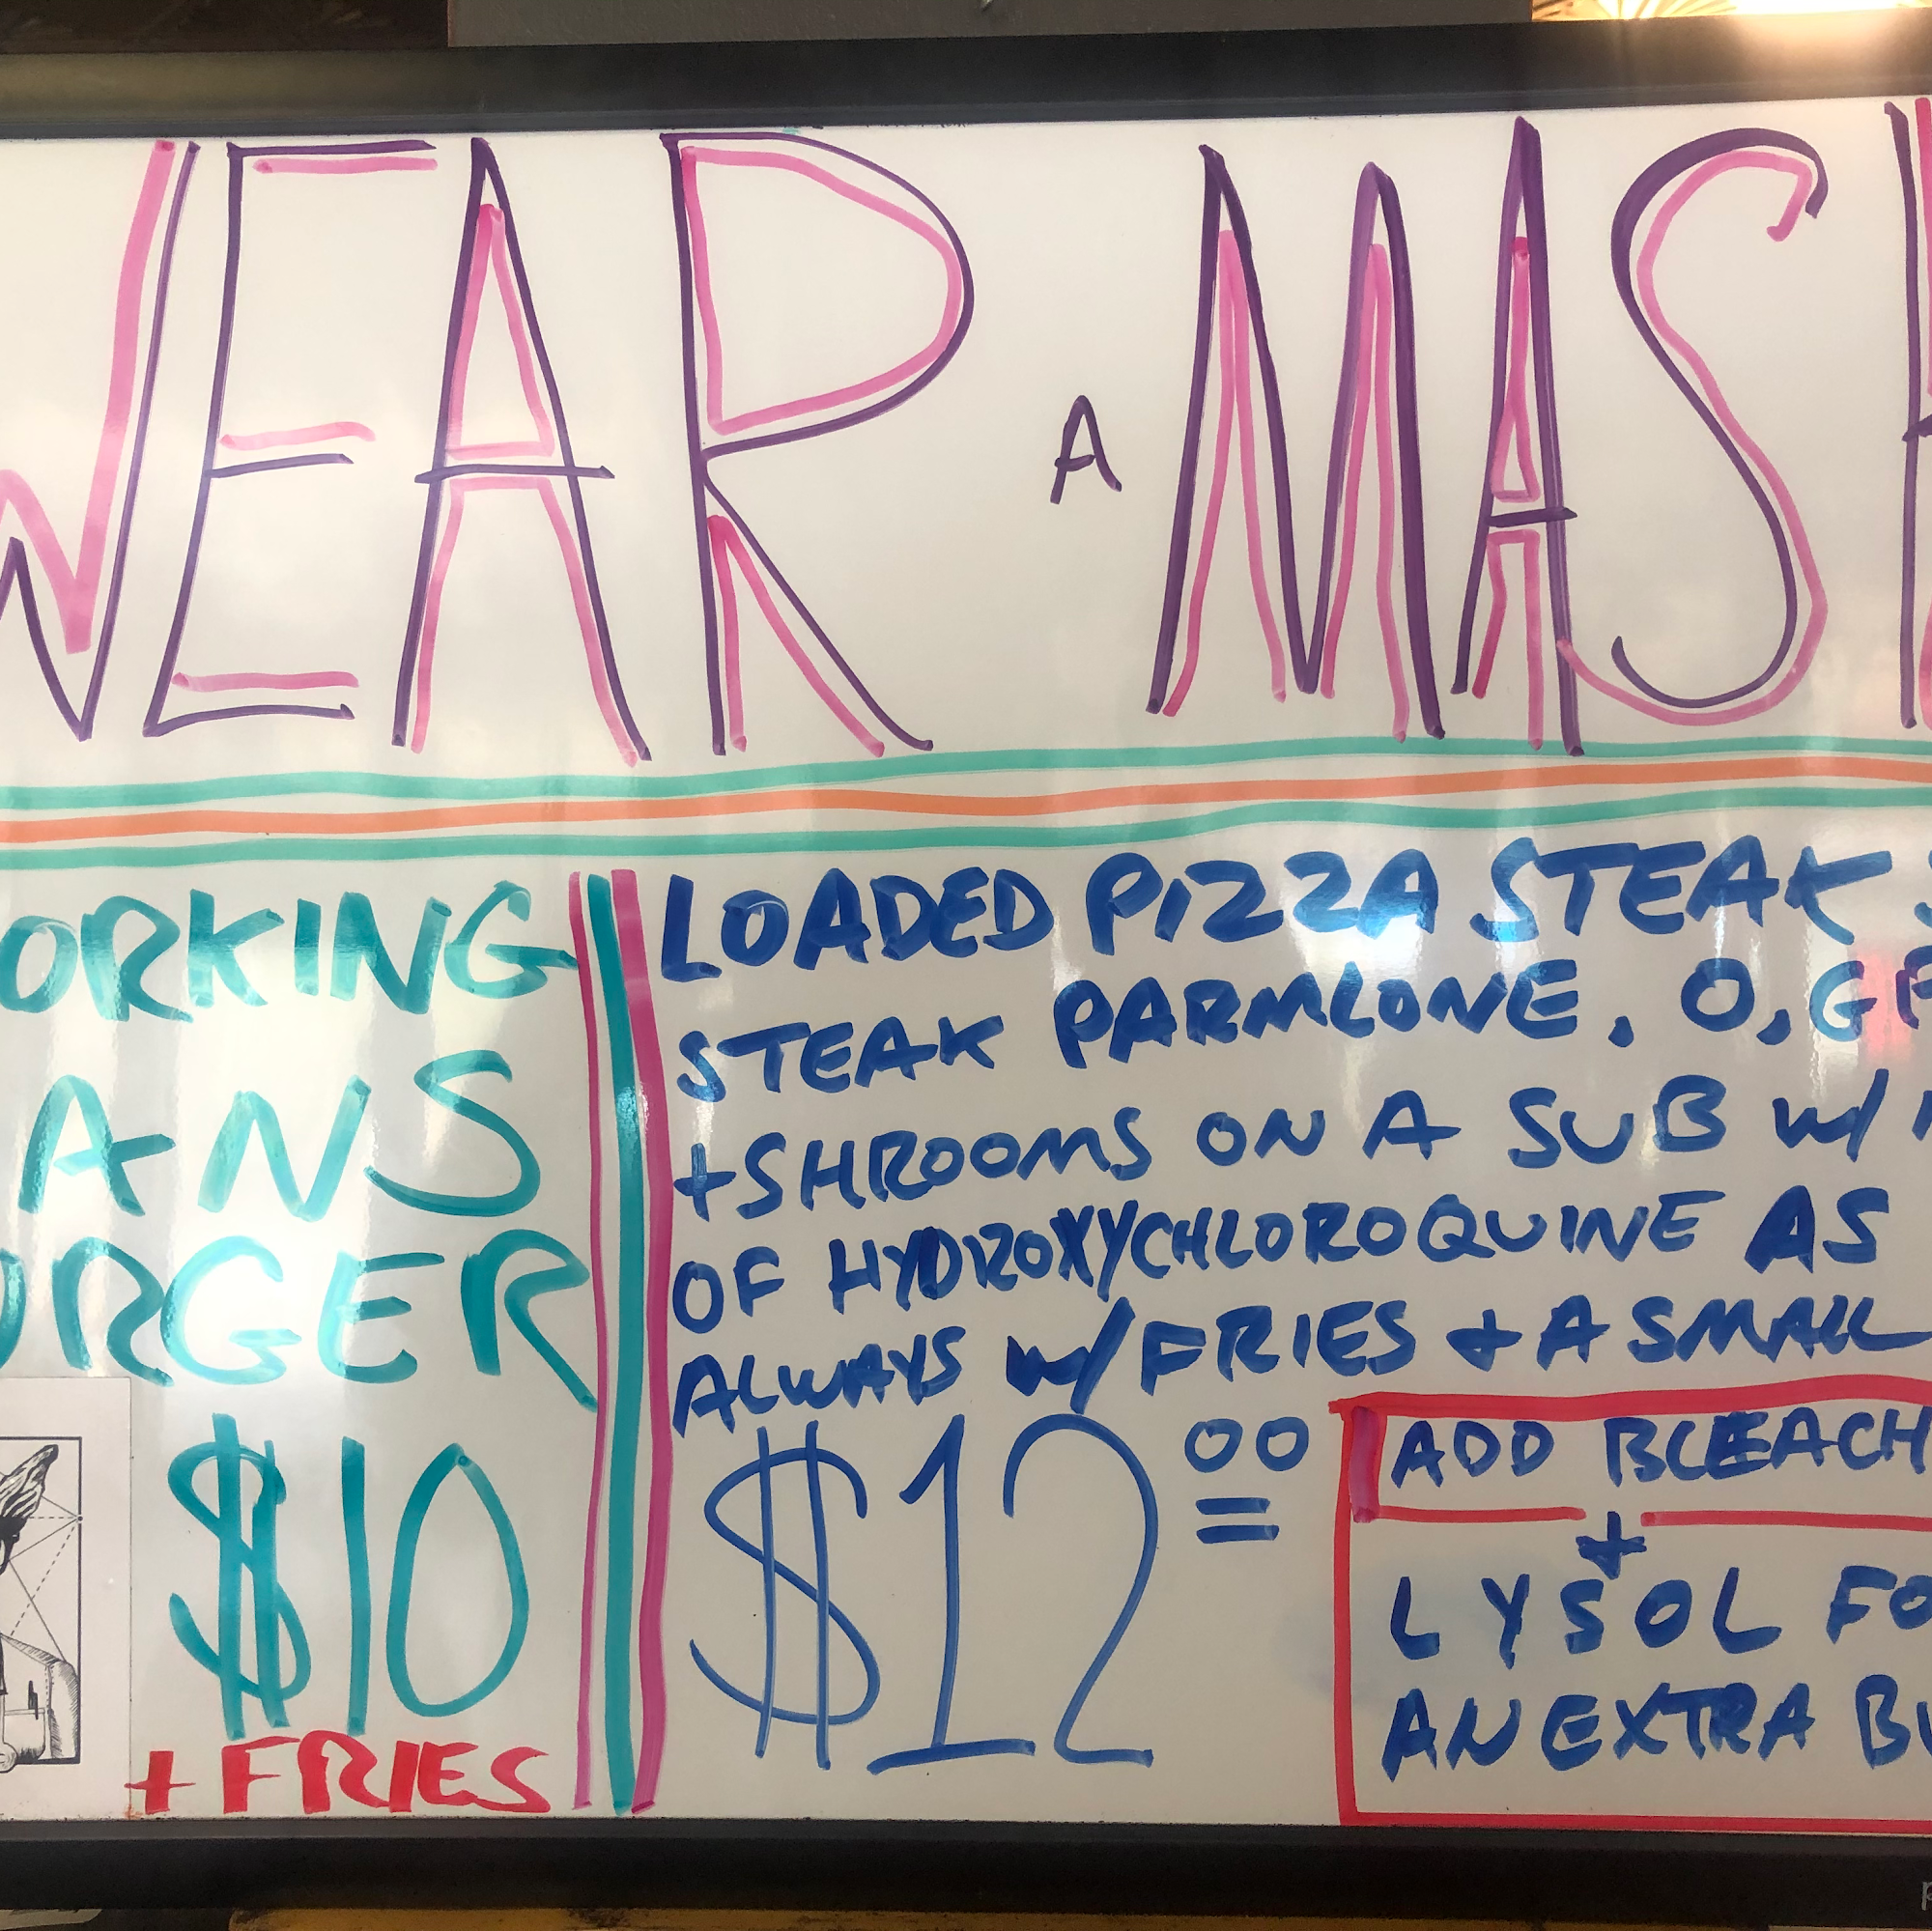 WEAR A MASK
WORKING
MANS
BURGER
$10
+ FRIES
LOADED PIZZA STEAK
STEAK PARMLONE. O, G
+SHROOMS ON A SUB W/
OF HYDROXYCHLOROQUINE AS
ALWAYS W/ FRIES + A SMALL
$12 00
ADD BLEACH
+
LYSOL FO
AN EXTRA BU